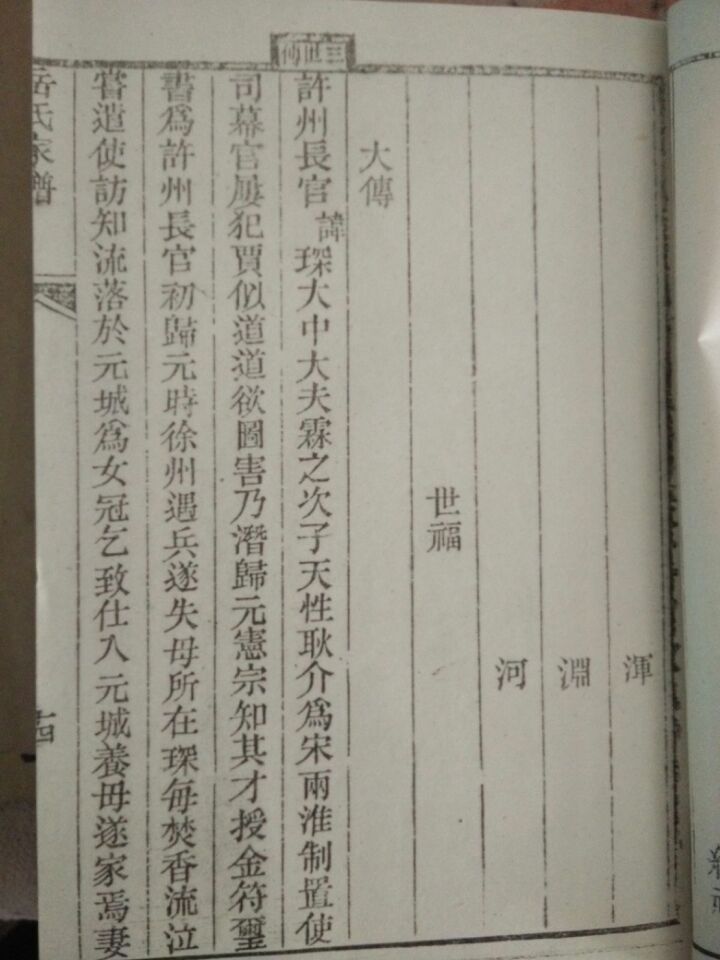 三世傳
渾
淵
河
世福
大傳
許州長官諱琛大中大夫霖之次子天性耿介爲宋兩淮制置使
司幕官屢犯賈似道道欲圖害乃潛歸元憲宗知其才授金符璽
書爲許州長官初歸元時徐州遇兵遂失母所在琛每焚香流泣
嘗遣使訪知流落於元城爲女冠乞致仕入元城養母遂家焉妻
岳氏家譜
十四